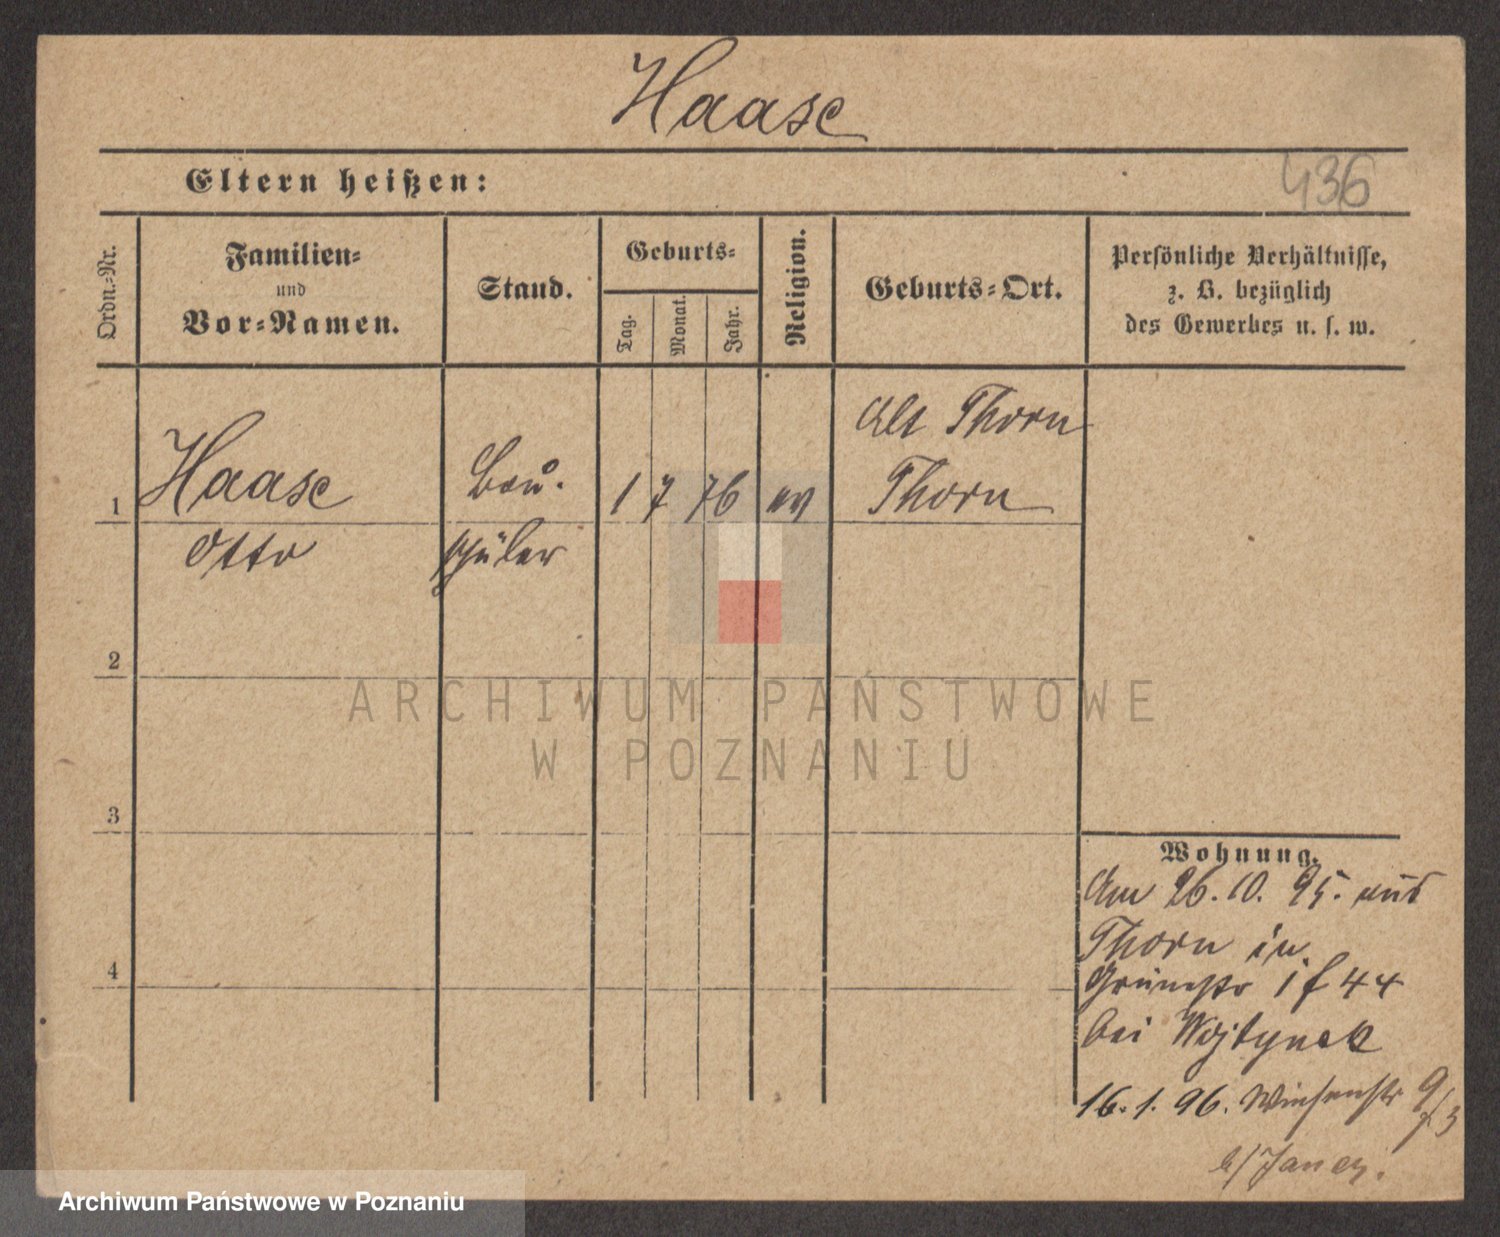 Haase
Eltern heißen:
436
Ordn.-Nr.
Familien-
und
Vor-Namen.
Stand.
Geburts-
Tag.
Monat.
Jahr.
Religion.
Geburts-Ort.
Persönliche Verhältnisse,
z. B. bezüglich
des Gewerbes u. s. w.
Alt Thorn
1 Haase Bau- 1 7 76 ev Thorn
Otto schüler
2
ARCHIWUM PAŃSTWOWE
W POZNANIU
3
Wohnung.
Am 26.10. 95. aus
Thorn in
4
Grünstr 1 f 44
bei Wojtynek
16.1.96. Wiesenstr 9/3
b/
Archiwum Państwowe w Poznaniu